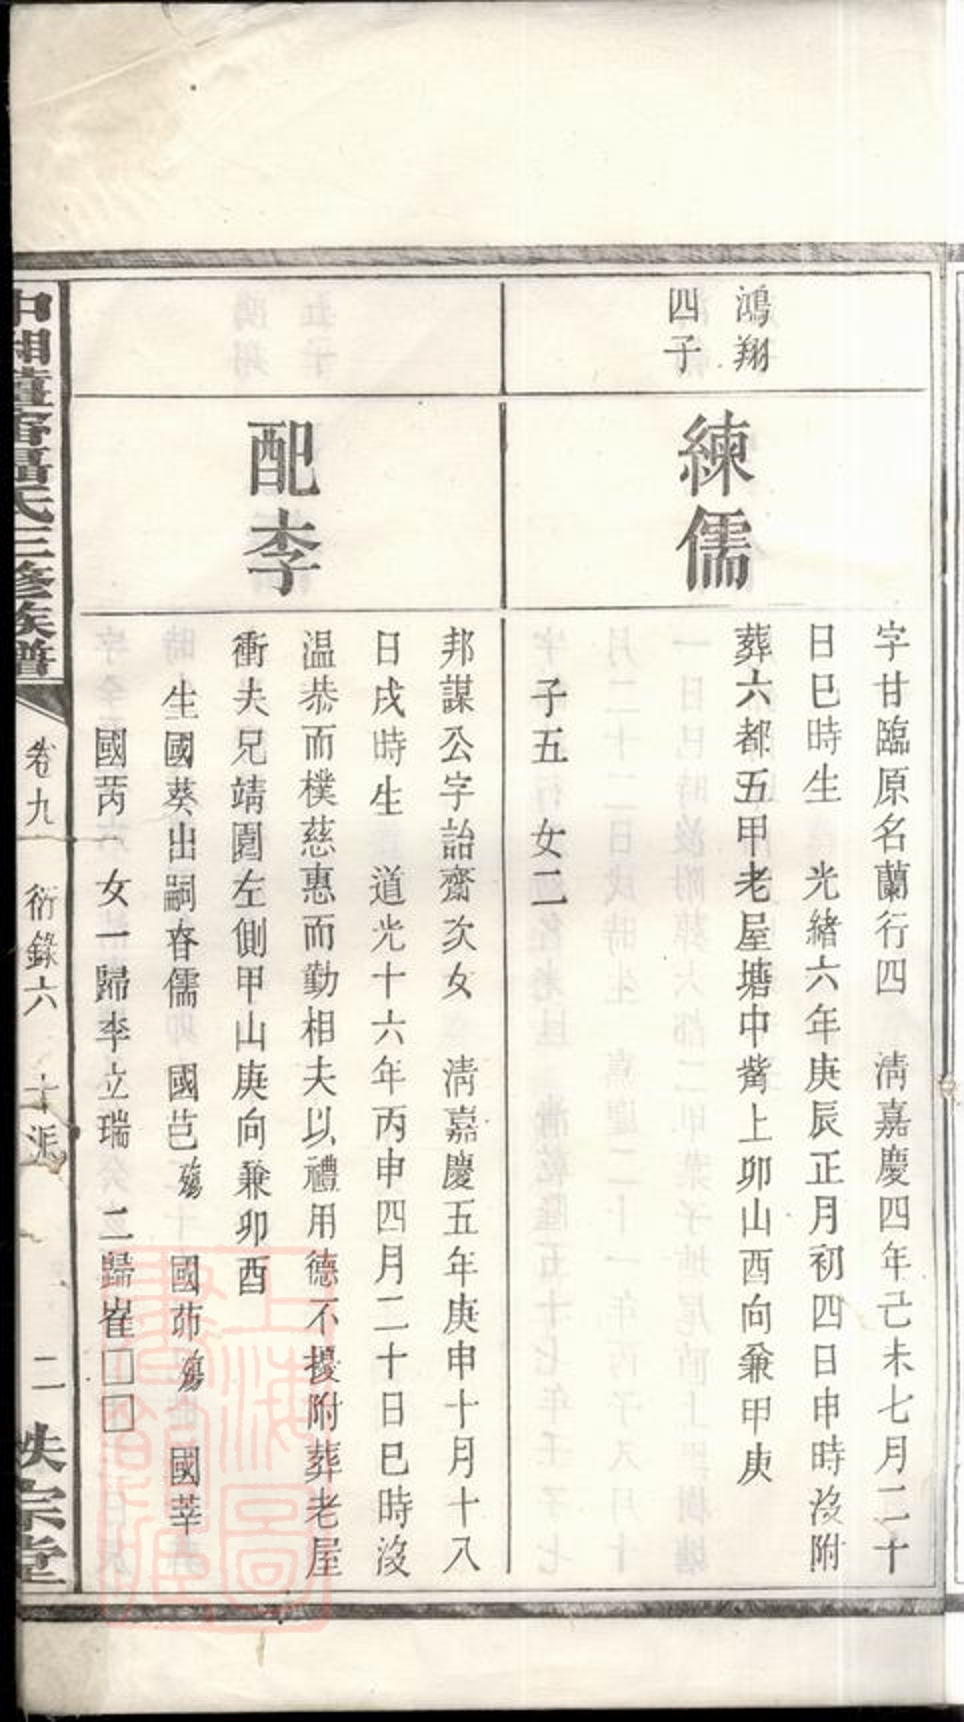 鴻翔
四子
練儒
字甘臨原名蘭行四　清嘉慶四年己未七月二十
日巳時生　光緒六年庚辰正月初四日申時沒附
葬六都五甲老屋塘中觜上卯山酉向兼甲庚
子五　女二
配李
邦謀公字詒齋次女　清嘉慶五年庚申十月十八
日戌時生　道光十六年丙申四月二十日巳時沒
温恭而樸慈惠而勤相夫以禮用德不擾附葬老屋
衝夫兄靖園左側甲山庚向兼卯酉
生國葵出嗣春儒　國芑殤　國茆殤　國莘
國苪　女一歸李立瑞　二歸崔□□
中湘聶氏三修族譜
卷九　衍錄六　十派　二
秩宗堂